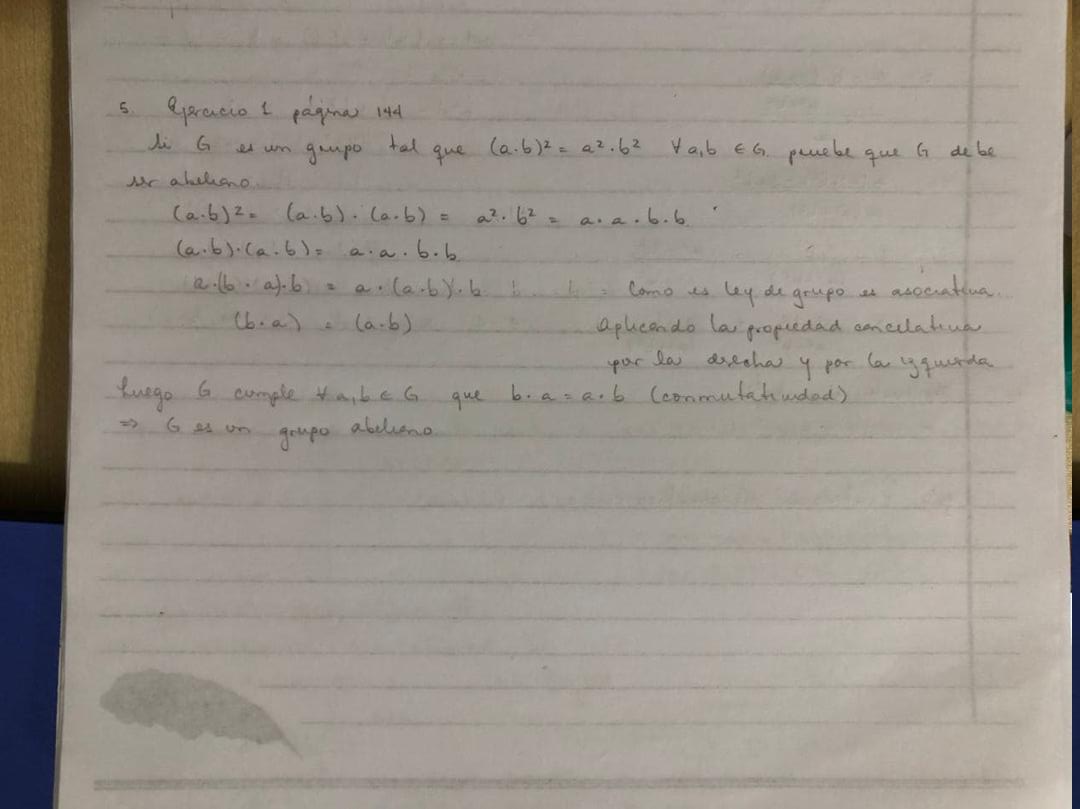 5. Ejercicio 1 página 144
Si G es un grupo tal que (a·b)² = a²·b² ∀a,b ∈ G. pruebe que G debe
ser abeliano.
(a·b)² = (a·b)·(a·b) = a²·b² = a·a·b·b.
(a·b)·(a·b) = a·a·b·b.
a·(b·a)·b = a·(a·b)·b Como es ley de grupo es asociativa.
(b·a) = (a·b) aplicando la propiedad cancelativa
por la derecha y por la izquierda
Luego G cumple ∀a,b ∈ G que b·a = a·b (conmutatividad)
⇒ G es un grupo abeliano.